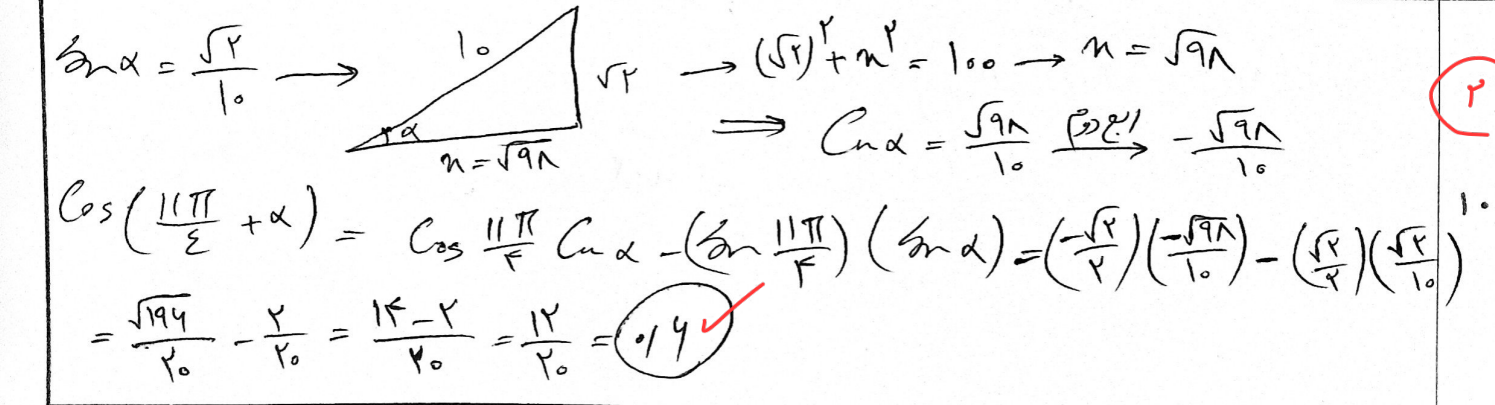 sin α = √۲/۱۰ → ۱۰ α √۲ x = √۹۸ → (√۲)^۲ + x^۲ = ۱۰۰ → x = √۹۸
⇒ Cos α = √۹۸/۱۰ → ربع دوم -√۹۸/۱۰
۲
Cos(۱۱π/٤ + α) = Cos ۱۱π/۴ Cos α - (sin ۱۱π/۴)(sin α) = (-√۲/۲)(-√۹۸/۱۰) - (√۲/۲)(√۲/۱۰)
۱۰
= √۱۹۶/۲۰ - ۲/۲۰ = ۱۴-۲/۲۰ = ۱۲/۲۰ = ۰/۶ ✓